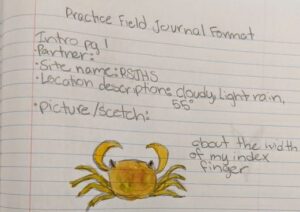 Practice Field Journal Format
Intro pg 1
• Partner:
• Site name: RSJHS
• Location description: cloudy, Light rain,
55°
• Picture/scetch:
about the width
of my index
finger